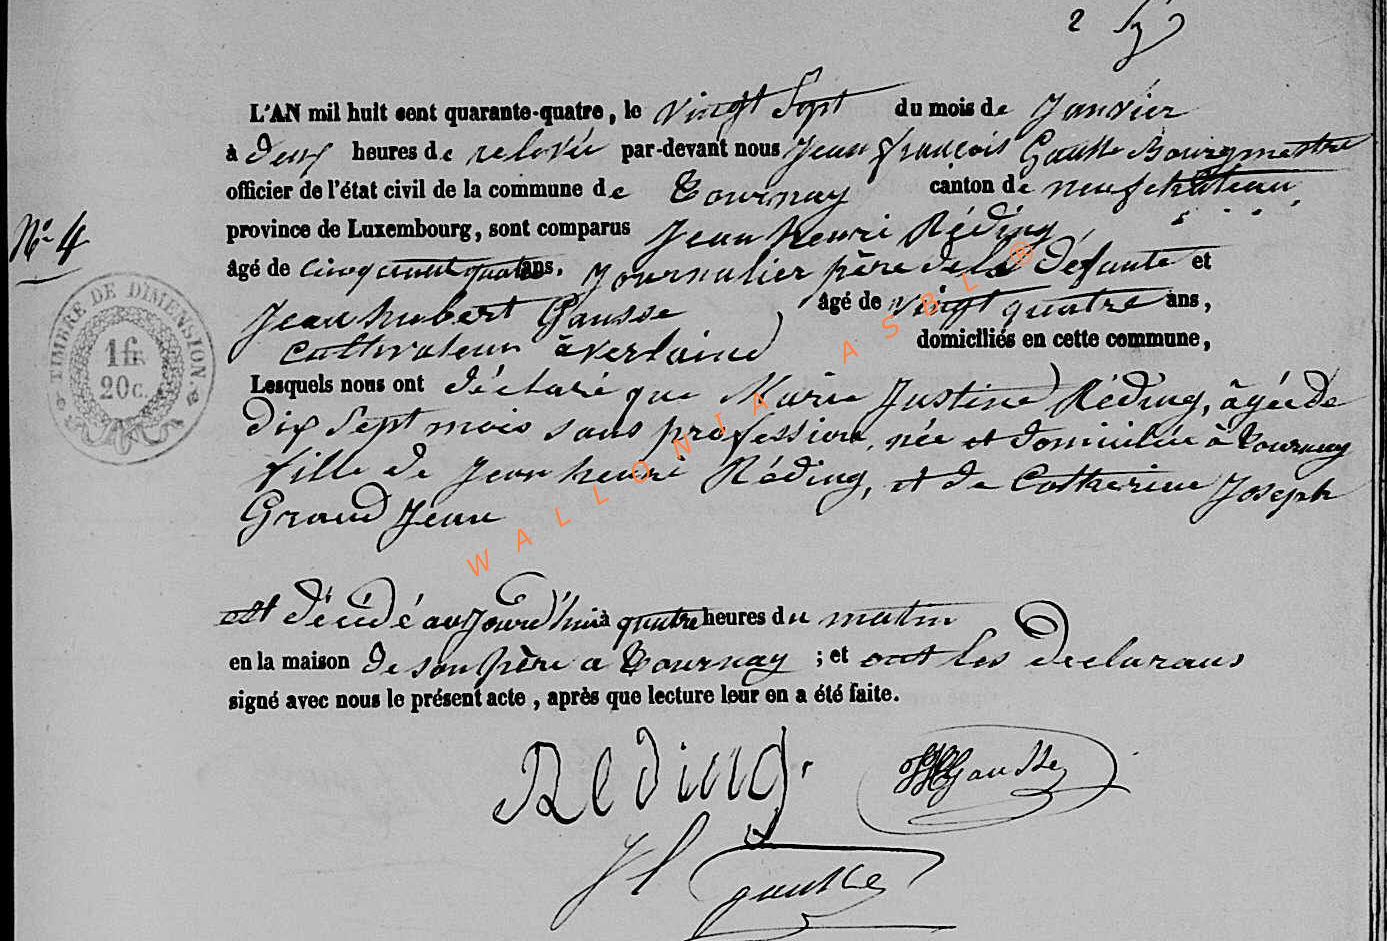 2
L'AN mil huit cent quarante-quatre, le vingt Sept du mois de Janvier
à deux heures de relevée par-devant nous Jean françois Gausse Bourgmestre
officier de l'état civil de la commune de Tournay canton de neufchateau
province de Luxembourg, sont comparus Jean henri Réding
No. 4
âgé de cinquante quatre ans, Journalier père de la défunte et
Jean hubert Gausse âgé de vingt quatre ans,
Cultivateur à Verlaine domiciliés en cette commune,
Lesquels nous ont déclaré que Marie Justine Réding, âgée de
dix Sept mois sans profession, née et domiciliée à Tournay
fille de Jean henri Réding, et de Catherine Joseph
Grand Jean
est décédé aujourd'hui à quatre heures du matin
en la maison de son père a Tournay ; et ont les declarans
signé avec nous le présent acte, après que lecture leur en a été faite.
TIMBRE DE DIMENSION.
1 fr.
20 c.
Reding.
JH Gausse
J f gausse
WALLONIA ASBL ®